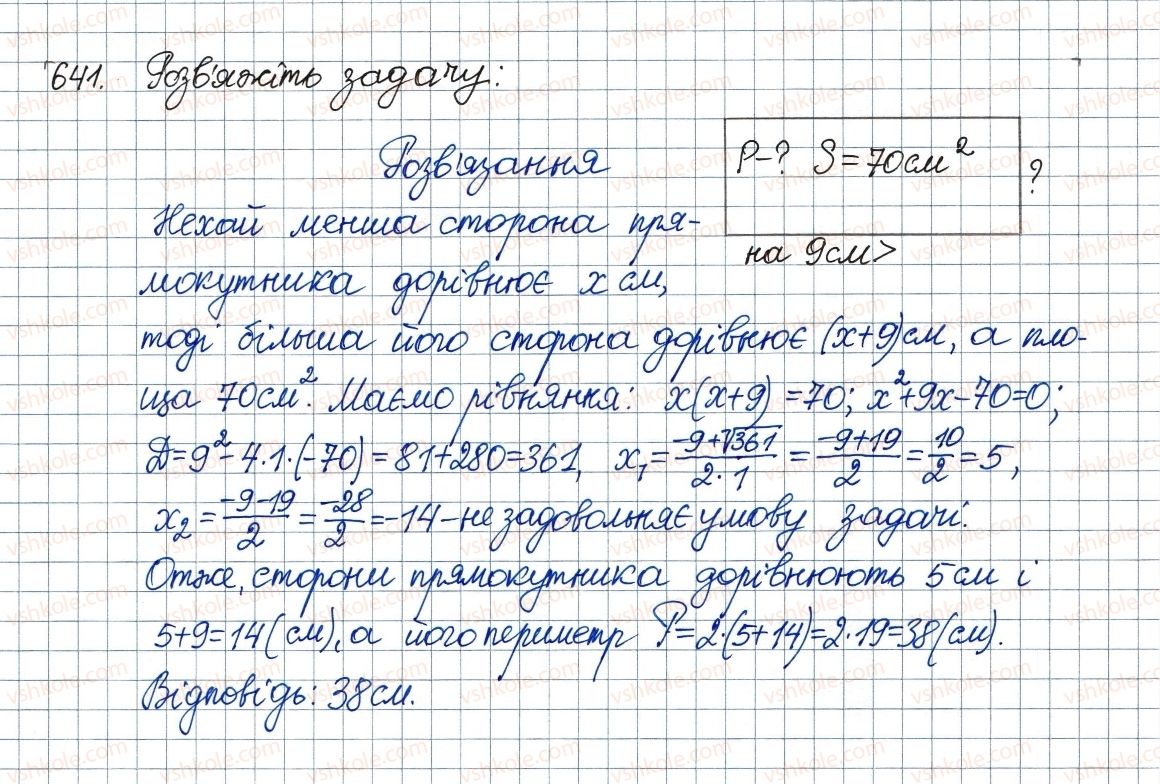 641. Розв'яжіть задачу:
P-? S=70см²
?
на 9см>
Розв'язання
Нехай менша сторона пря-
мокутника дорівнює x см,
тоді більша його сторона дорівнює (x+9)см, а пло-
ща 70см². Маємо рівняння: x(x+9)=70; x²+9x-70=0;
Д=9²-4·1·(-70)=81+280=361, x₁=(-9+√361)/(2·1)=(-9+19)/2=10/2=5,
x₂=(-9-19)/2=-28/2=-14-не задовольняє умову задачі.
Отже, сторони прямокутника дорівнюють 5см і
5+9=14(см), а його периметр P=2·(5+14)=2·19=38(см).
Відповідь: 38см.